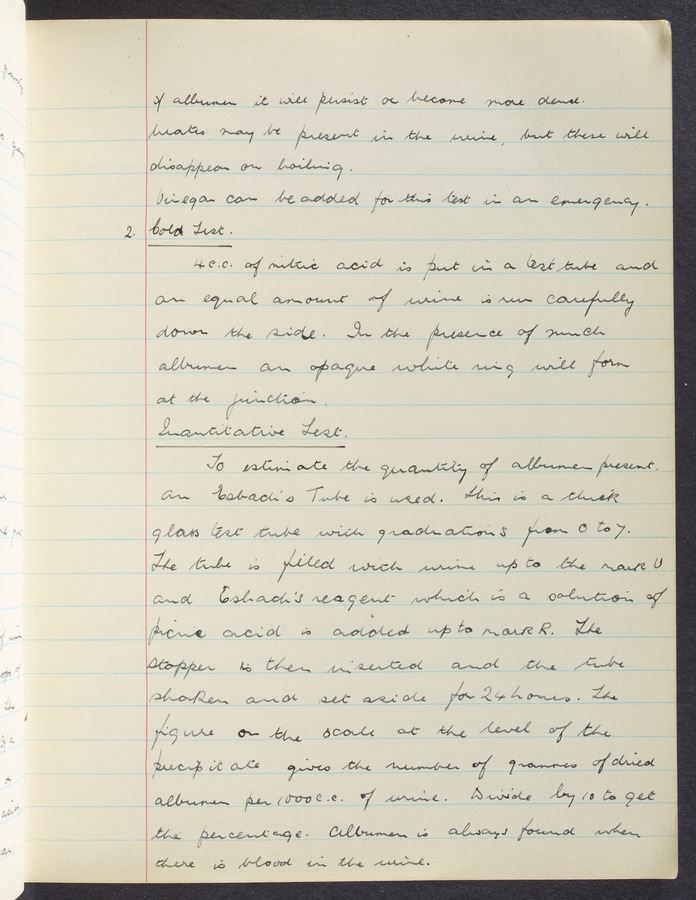 If albumen it will persist or become more dense.
Urates may be present in the urine, but these will
disappear on boiling.
Vinegar can be added for this test in an emergency.
2. Cold Test.
4 c.c. of nitric acid is put in a test tube and
an equal amount of urine is run carefully
down the side. In the presence of much
albumen an opaque white ring will form
at the junction.
Quantitative Test.
To estimate the quantity of albumen present.
an Esbach's Tube is used. This is a thick
glass test tube with graduations from 0 to 7.
The tube is filled with urine up to the mark U
and Esbach's reagent which is a solution of
picric acid is added up to mark R. The
stopper is then inserted and the tube
shaken and set aside for 24 hours. The
figure on the scale at the level of the
precipitate gives the number of grammes of dried
albumen per 1000 c.c. of urine. Divide by 10 to get
the percentage. Albumen is always found when
there is blood in the urine.